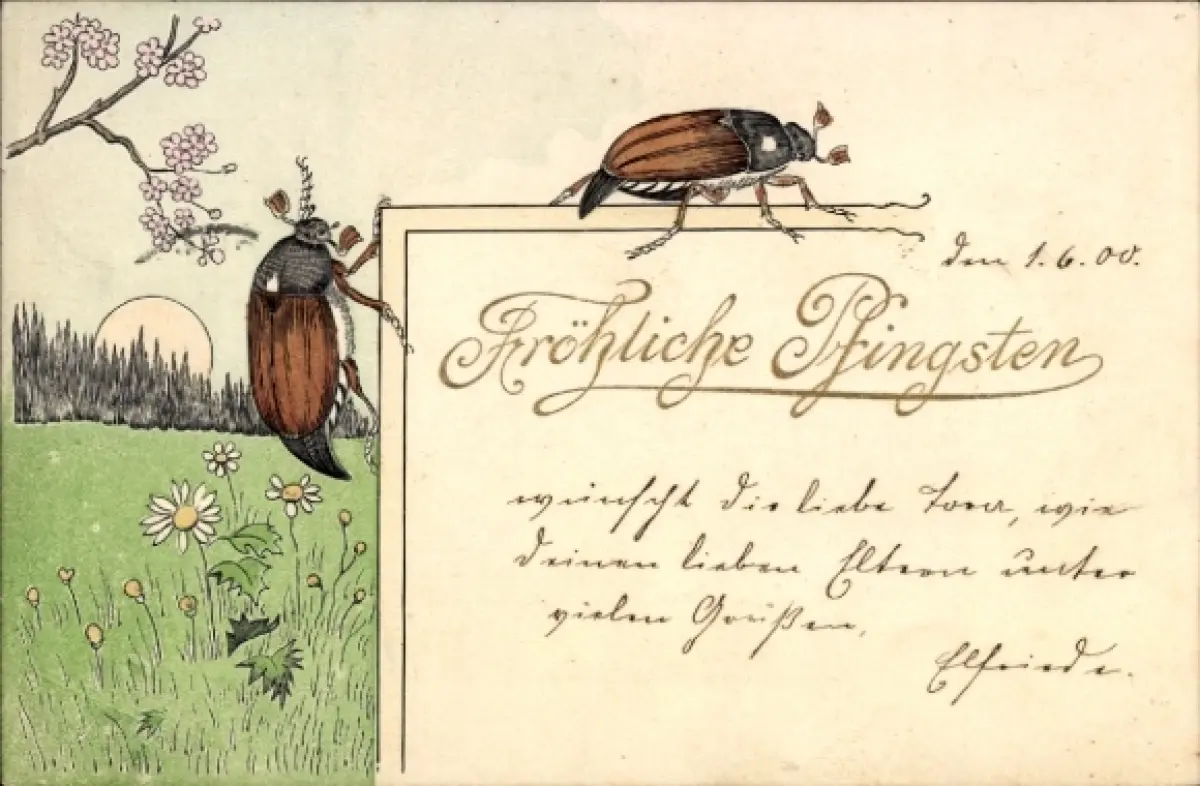 den 1.6.00.
Fröhliche Pfingsten
wünscht Dir liebe wie
deinen lieben Eltern unter
vielen Grüßen,
Elfriede.